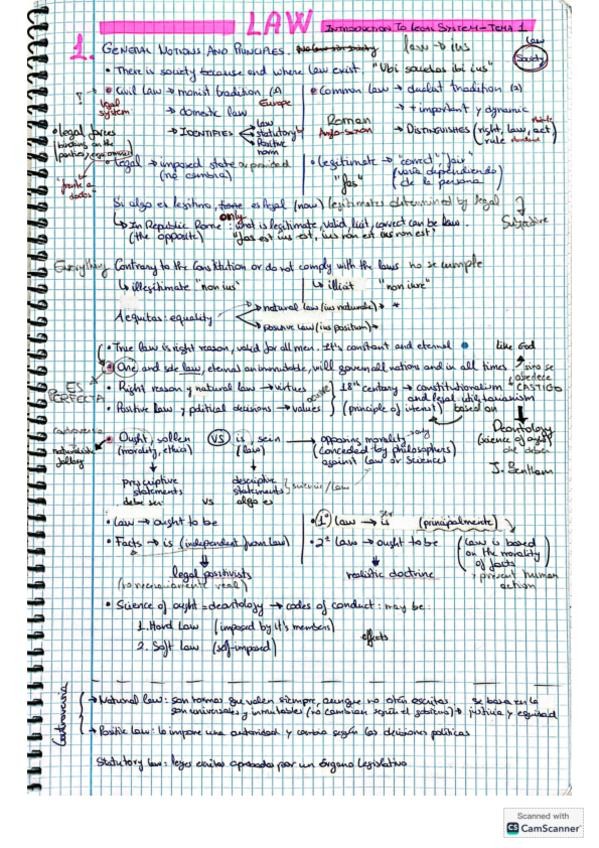 LAW
INTRODUCTION TO LEGAL SYSTEM - TEMA 1
1. GENERAL NOTIONS AND PRINCIPLES.
law → ius
law
Society
• There is society because and where law exist. "Ubi societas ibi ius"
• Civil law → monist tradition (1)
• Common law → dualist tradition (2)
legal system
→ domestic law
Europe
→ + important y dynamic
Roman
Anglo-saxon
→ IDENTIFIES
Law
statutory
Positive norm
→ DISTINGUISHES (right, law, act)
rule
• legal forces
• legal → imposed state
(no cambia)
• legitimate → "correct", "fair"
"fas"
(varía dependiendo de la persona)
Si algo es legítimo, es legal (now) legitimates determined by legal
Subjective
only
↳ In Republic Rome: what is legitimate, valid, licit, correct can be law.
(the opposite)
"fas est ius est, ius non est ius non est"
Everything
Contrary to the Constitution or do not comply with the laws no se cumple
↳ illegitimate "non ius"
↳ illicit "non iure"
Aequitas: equality
→ natural law (ius naturale) → *
→ positive law (ius positum) →
• True law is right reason, valid for all men. It's constant and eternal
like God
• One and sole law, eternal an inmutable, will govern all nations and in all times
ES PERFECTA
se obedece
CASTIGO
• Right reason y natural law → virtues
• Positive law y political decisions → values
18th century → constitutionalism
and legal utilitarianism
(principle of utility)
based on
Deontology
(science of ought)
J. Bentham
• Ought, sollen
(morality, ethics)
VS
is, sein
(law)
→ opposing morality
(conceded by philosophers)
against law or science
prescriptive statements
debe ser
vs
descriptive statements
algo es
• Law → ought to be
• Facts → is (independent from law)
legal positivists
• 1º law → is (principalmente)
• 2º law → ought to be
realistic doctrine
(law is based on the morality of facts
y prevent human action
• Science of ought = deontology → codes of conduct: may be:
1. Hard Law (imposed by it's members)
2. Soft Law (self-imposed)
effects
Controversia
→ Natural law: son normas que valen siempre, aunque no estén escritas
son universales y inmutables (no cambian según el gobierno) →
se basa en la justicia y equidad
→ Positive law: lo impone una autoridad y cambia según las decisiones políticas
Statutory law: leyes escritas aprobadas por un órgano legislativo
Scanned with
CS CamScanner